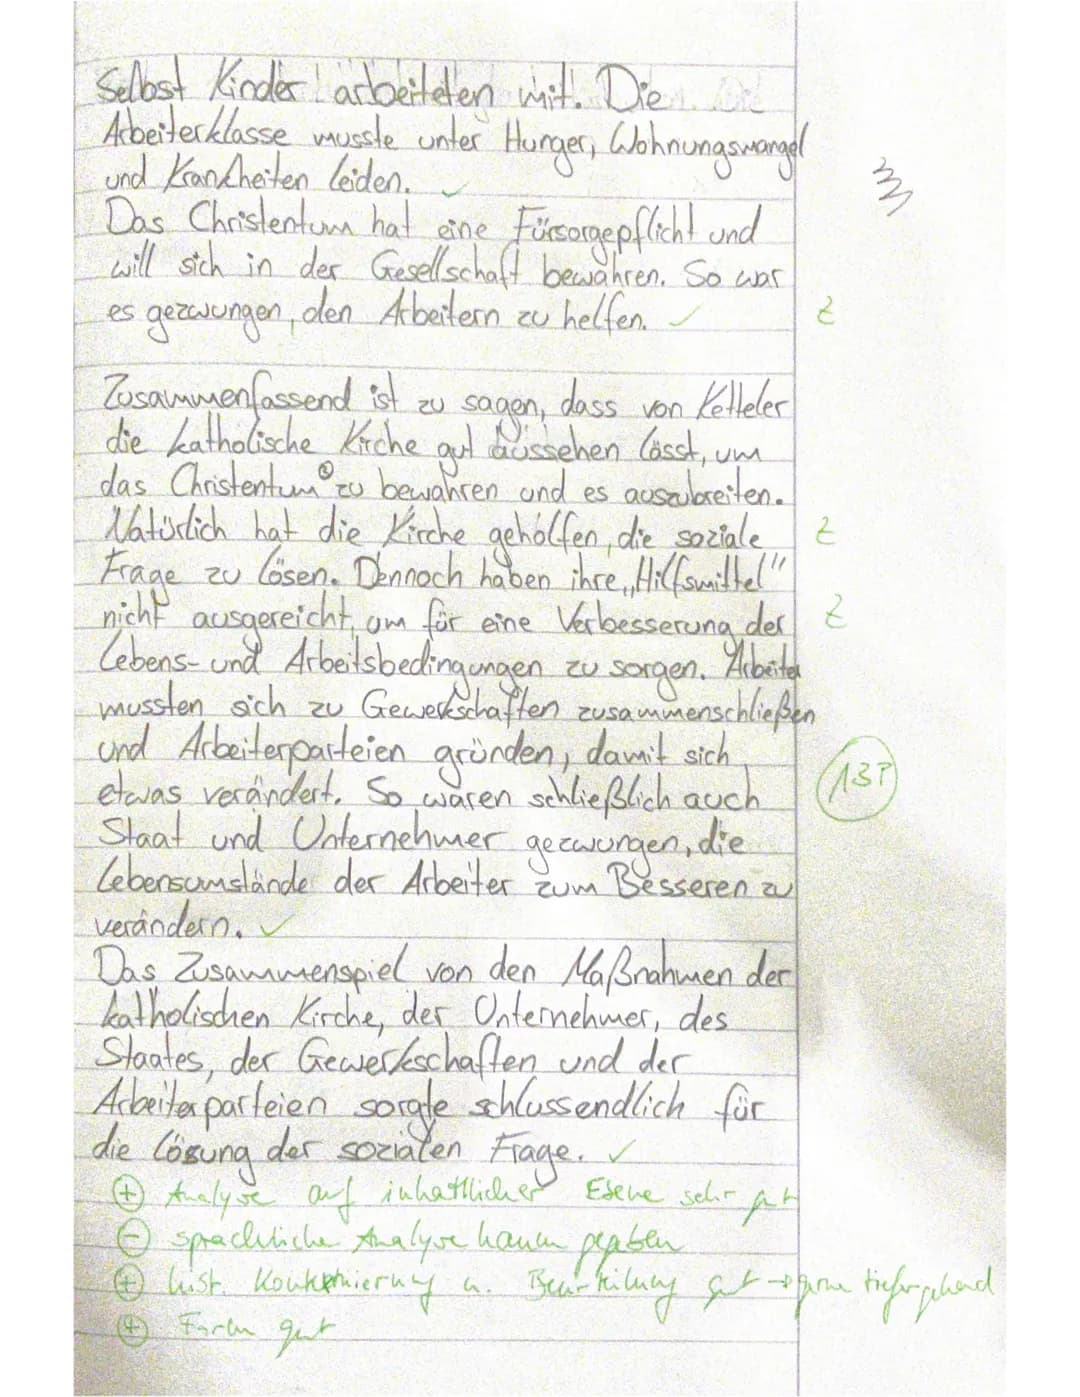 Selbst Kinder arbeiteten mit. Die
Arbeiterklasse musste unter Hunger, Wohnungsmangel
und Krankheiten leiden. ✓
Das Christentum hat eine Fürsorgepflicht und
will sich in der Gesellschaft bewahren. So war
es gezwungen, den Arbeitern zu helfen. ✓ Z
Zusammenfassend ist zu sagen, dass von Ketteler
die katholische Kirche gut aussehen lässt, um
das Christentum zu bewahren und es auszubreiten.
Natürlich hat die Kirche geholfen, die soziale Z
Frage zu lösen. Dennoch haben ihre „Hilfsmittel"
nicht ausgereicht, um für eine Verbesserung der Z
Lebens- und Arbeitsbedingungen zu sorgen. Arbeiter
mussten sich zu Gewerkschaften zusammenschließen
und Arbeiterparteien gründen, damit sich
etwas verändert. So waren schließlich auch 13P
Staat und Unternehmer gezwungen, die
Lebensumstände der Arbeiter zum Besseren zu
verändern. ✓
Das Zusammenspiel von den Maßnahmen der
katholischen Kirche, der Unternehmer, des
Staates, der Gewerkschaften und der
Arbeiterparteien sorgte schlussendlich für
die Lösung der sozialen Frage. ✓
⊕ Analyse auf inhaltlicher Ebene sehr gut
⊖ sprachliche Analyse kaum gegeben
⊕ hist. Kontextuierung u. Beurteilung gut → gerne tiefergehend
⊕ Form gut